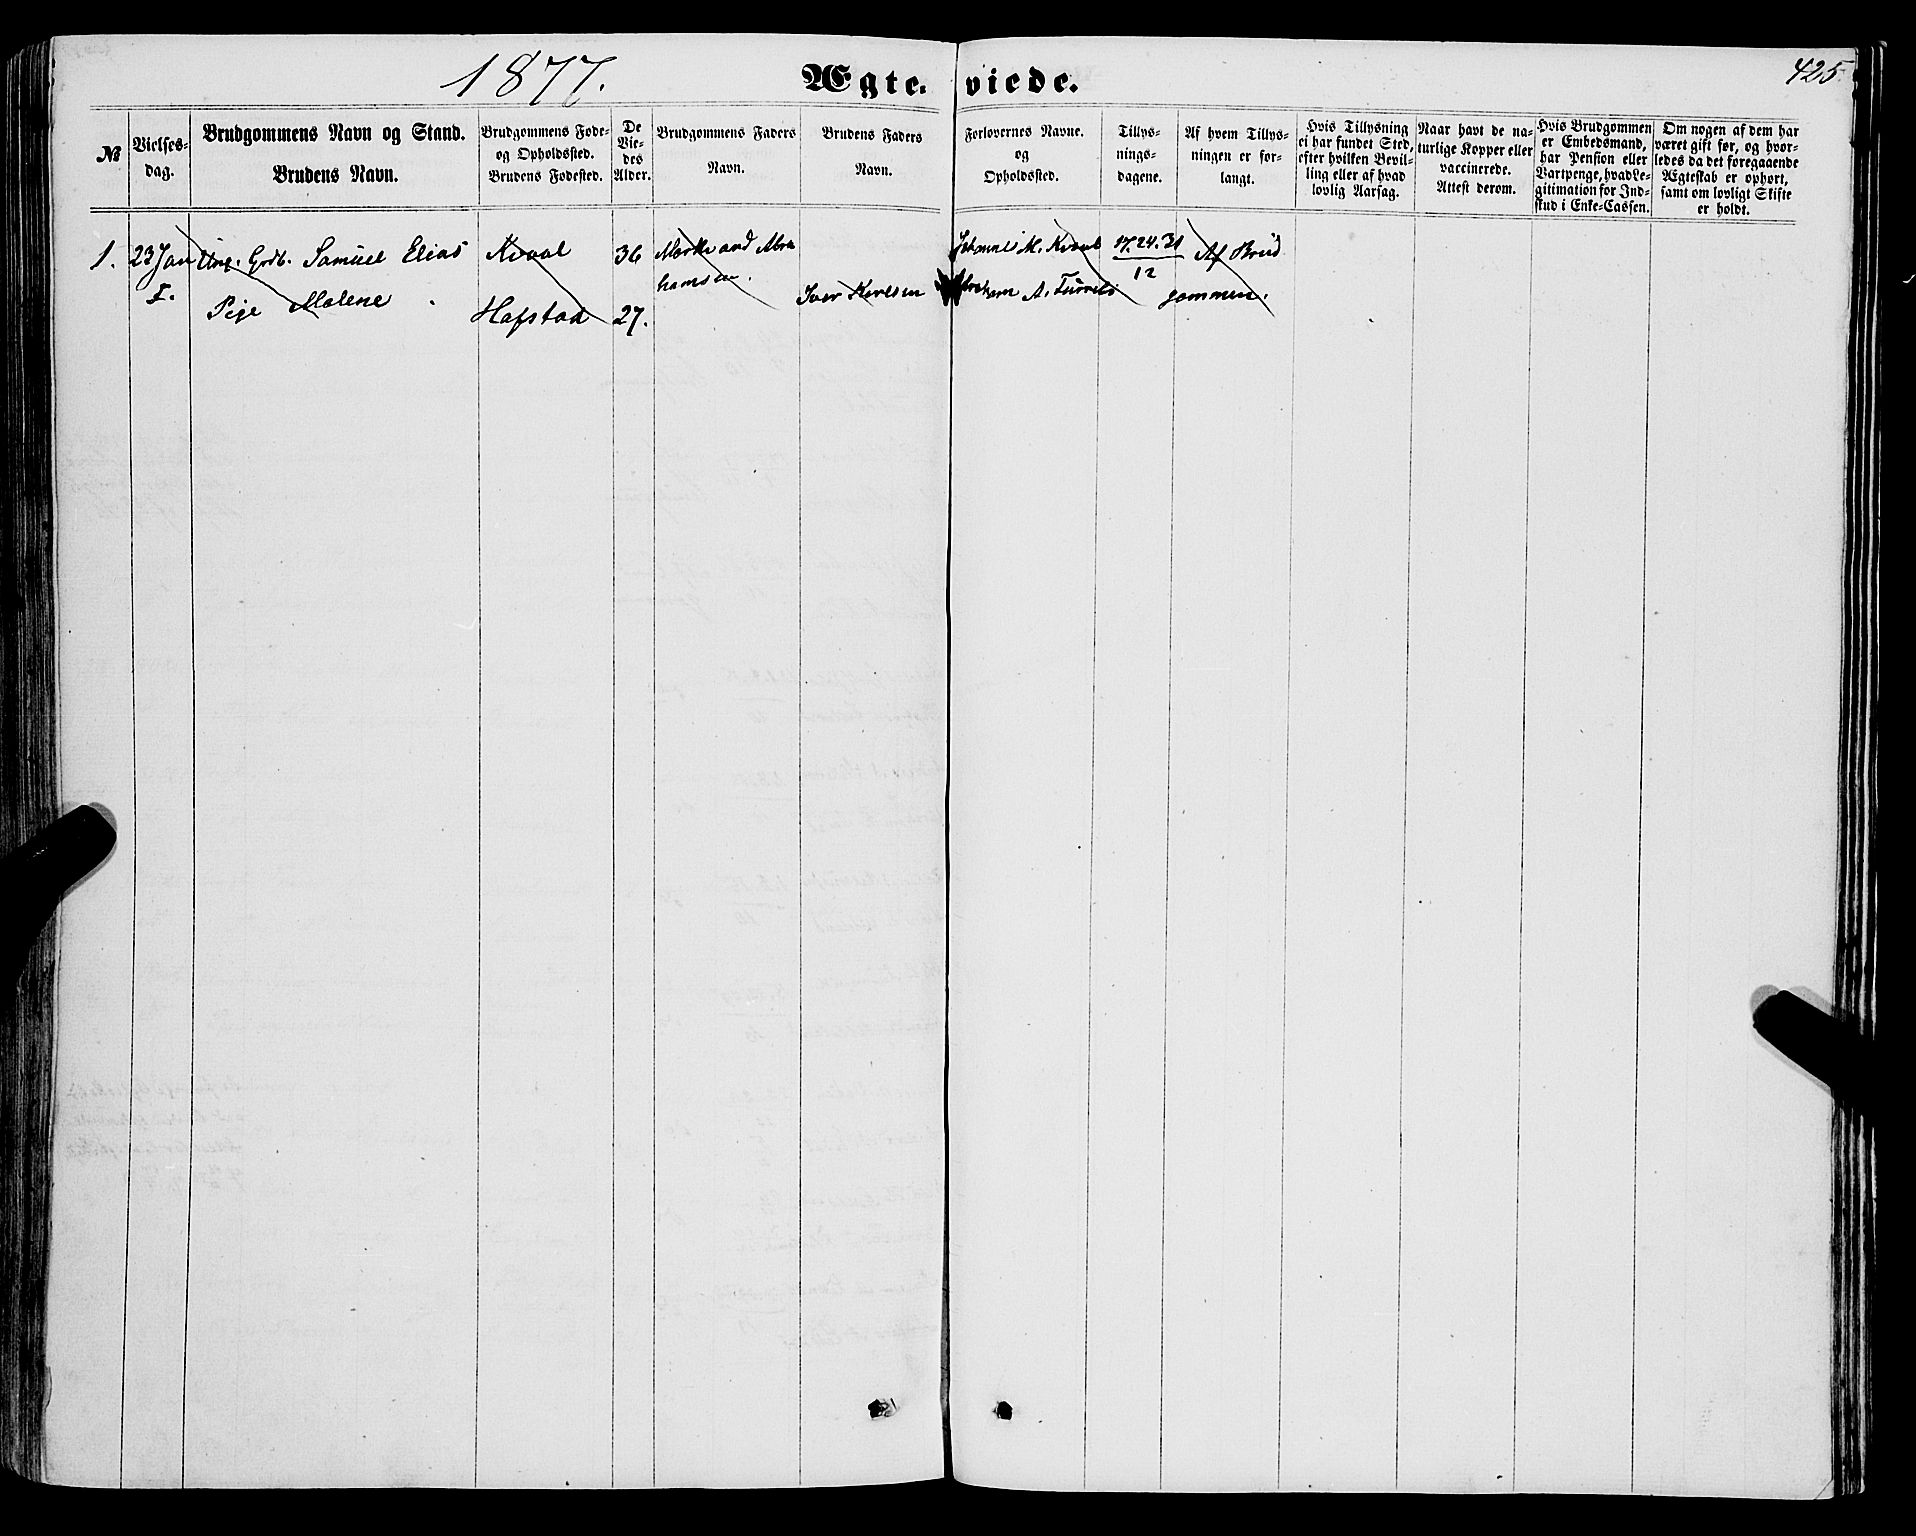 1877.
Ægte-viede.
425
№
Vielses-
dag.
Brudgommens Navn og Stand.
Brudens Navn.
Brudgommens Føde-
og Opholdssted.
Brudens Fødested.
De
Vie-
des
Alder.
Brudgommens Faders
Navn.
Brudens Faders
Navn.
Forlovernes Navne.
og
Opholdssted.
Tillys-
nings-
dagene.
Af hvem Tillys-
ningen er for-
langt.
Hvis Tillysning
ei har fundet Sted,
efter hvilken Bevil-
ling eller af hvad
lovlig Aarsag.
Naar havt de na-
turlige Kopper eller
vaccinerede.
Attest derom.
Hvis Brudgommen
er Embedsmand,
har Pension eller
Vartpenge, hvad Le-
gitimation for Ind-
skud i Enke-Cassen.
Om nogen af dem har
været gift før, og hvor-
ledes da det foregaaende
Ægteskab er ophørt,
samt om lovligt Skifte
er holdt.
1.
23 Jan
I.
Ung. Grdb. Samuel Elias
Pige Malene
Kvaal
Hafstad
36
27.
Abra
hamsen.
Iver
Johannes M. Kvaal
A.
17. 24. 31
12
Af Brud
gommen.